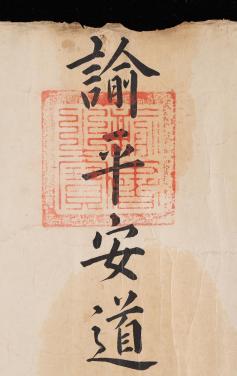 諭平安道